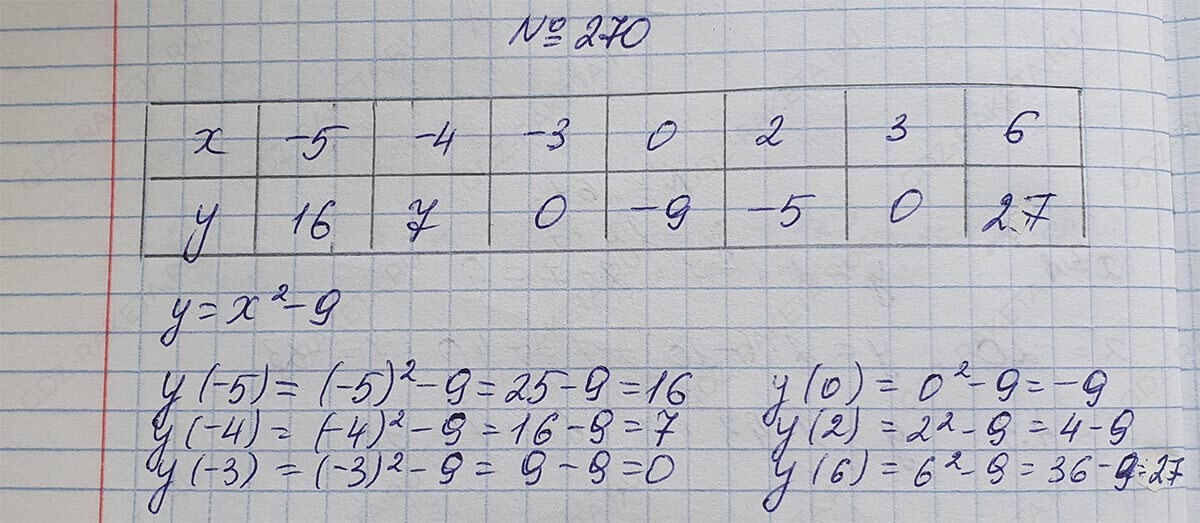 № 270
x -5 -4 -3 0 2 3 6
y 16 7 0 -9 -5 0 27
y = x² - 9
y(-5) = (-5)² - 9 = 25 - 9 = 16
y(-4) = (-4)² - 9 = 16 - 9 = 7
y(-3) = (-3)² - 9 = 9 - 9 = 0
y(0) = 0² - 9 = -9
y(2) = 2² - 9 = 4 - 9
y(6) = 6² - 9 = 36 - 9 = 27